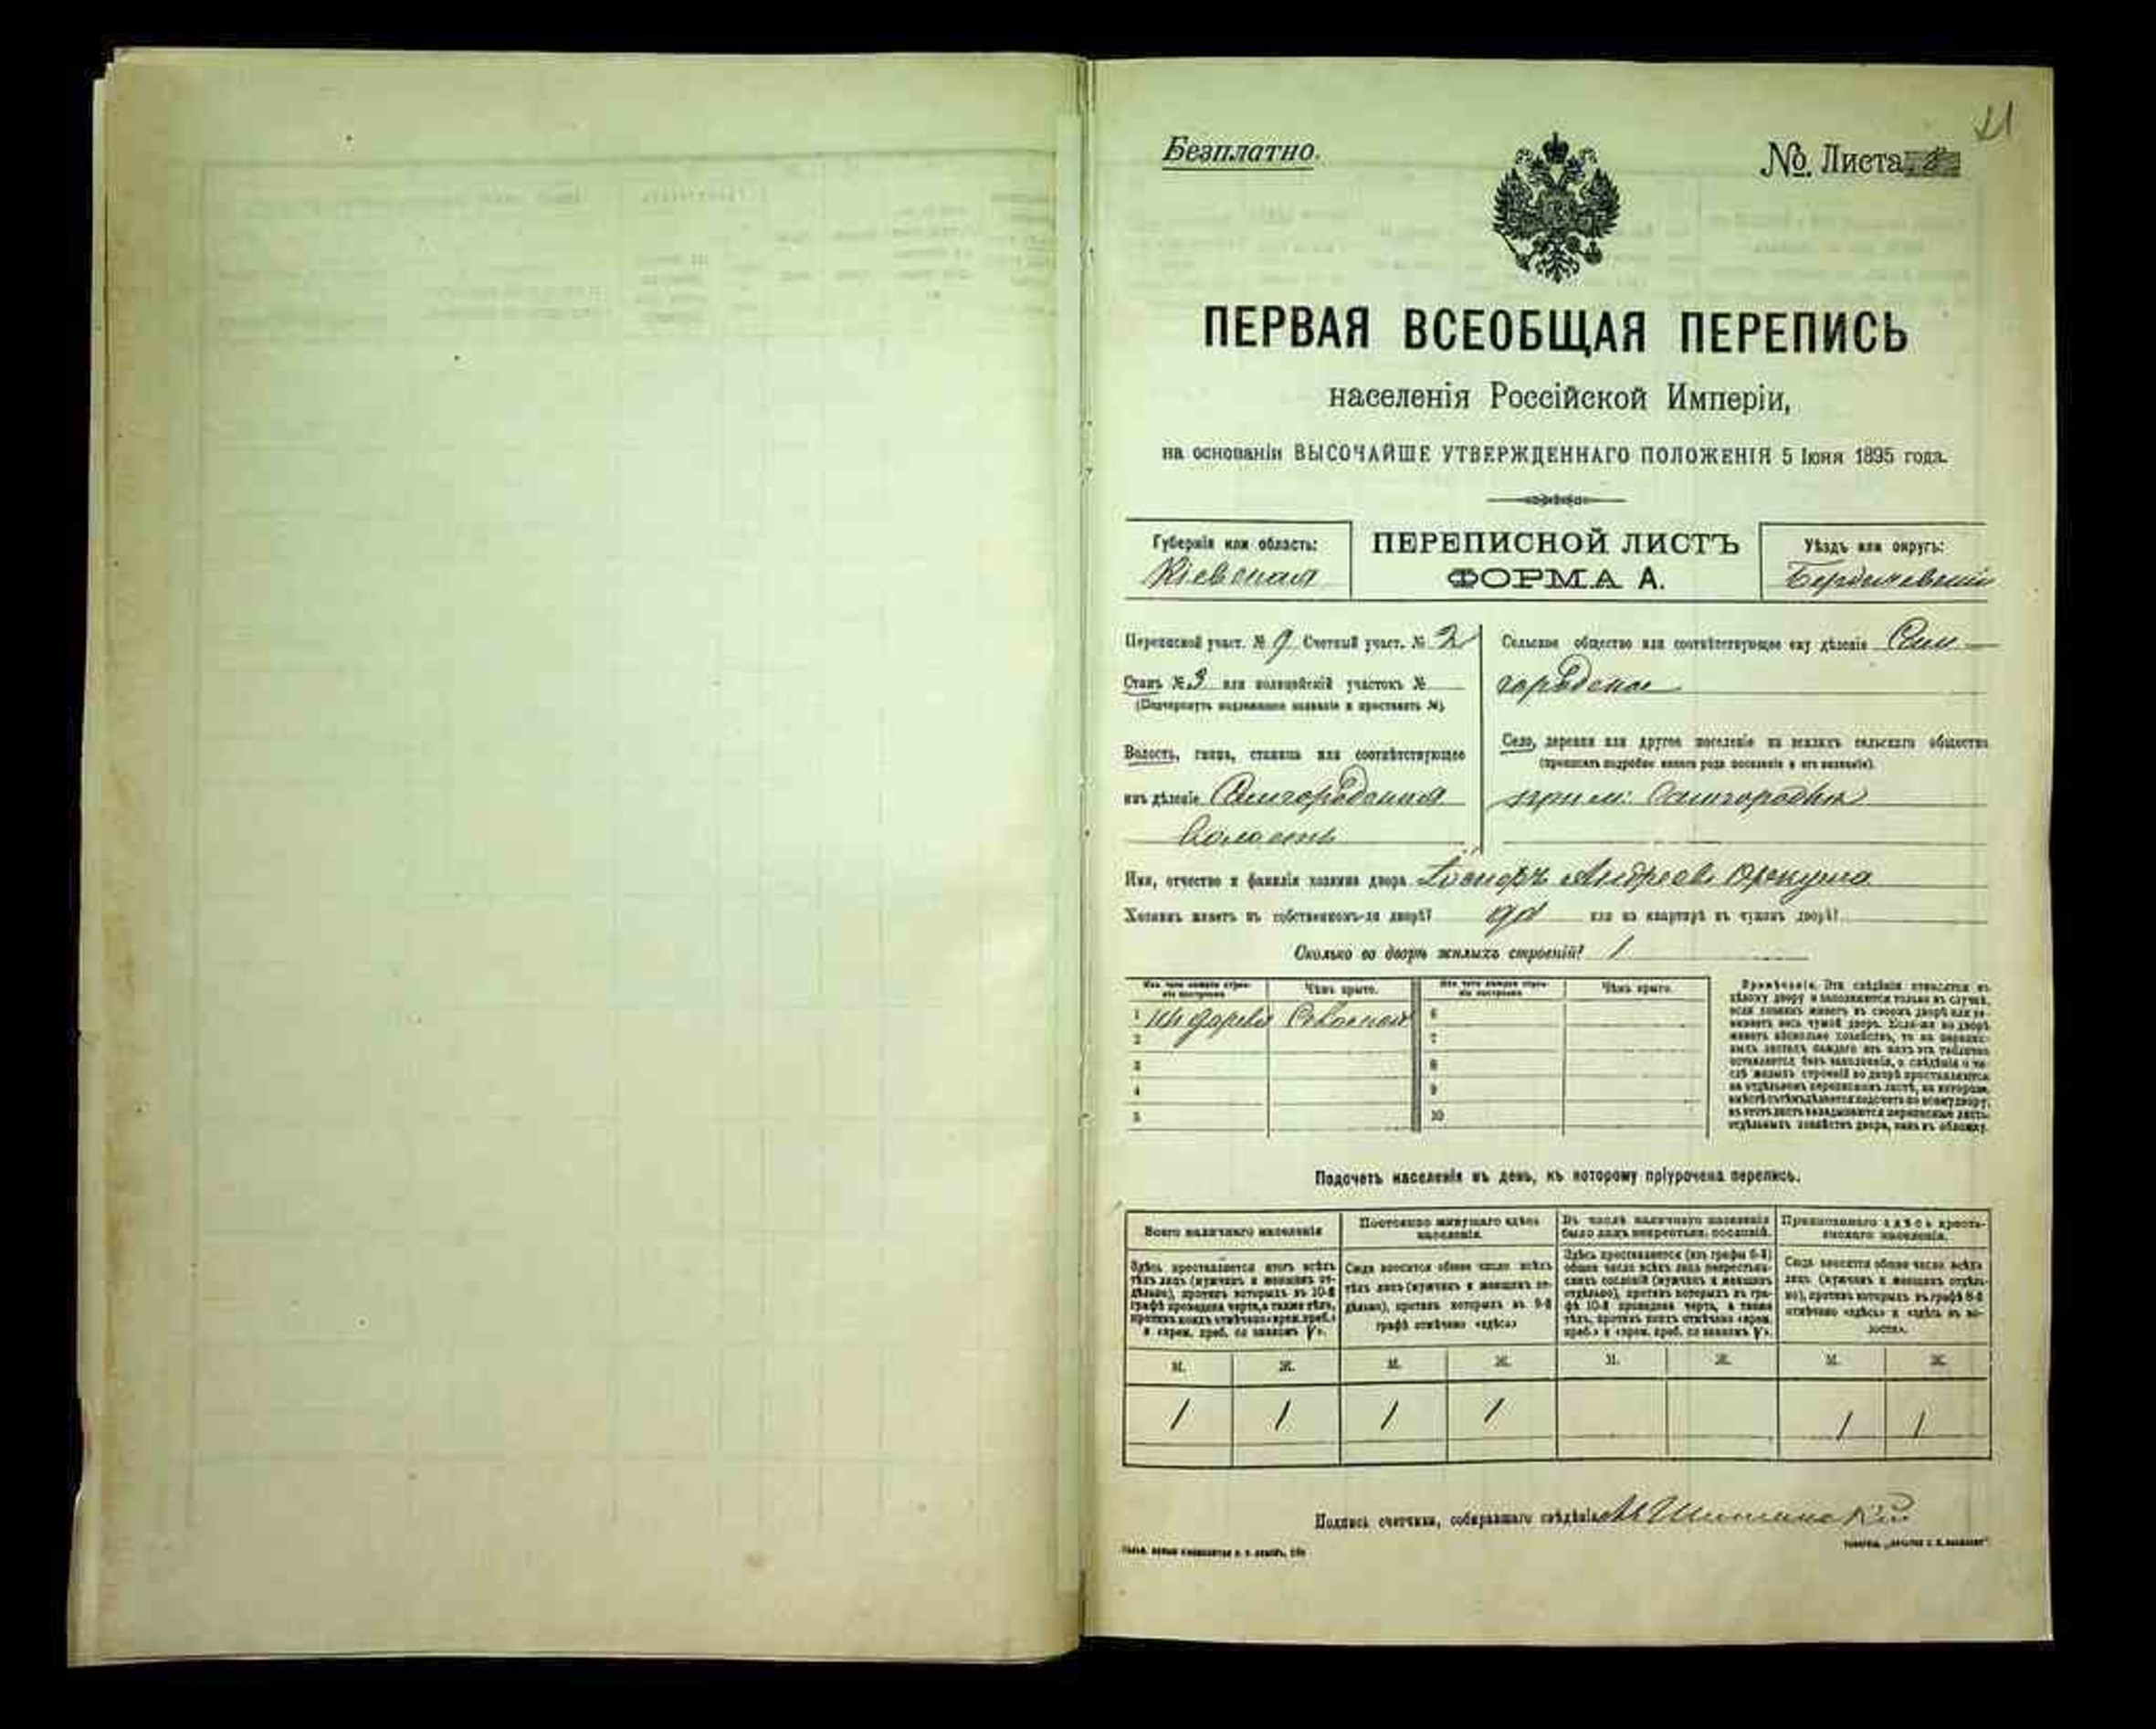 Безплатно.
№ Листа
ПЕРВАЯ ВСЕОБЩАЯ ПЕРЕПИСЬ
населенія Россійской Имперіи,
на основаніи ВЫСОЧАЙШЕ УТВЕРЖДЕННАГО ПОЛОЖЕНІЯ 5 Іюня 1895 года.
Губернія или область:
Кіевская
ПЕРЕПИСНОЙ ЛИСТЪ
ФОРМА А.
Уѣздъ или округъ:
Бердичевскій
Переписной участ. № 9 Счетный участ. № 2
Станъ № 3 или полицейскій участокъ №
(Подчеркнуть надлежащее названіе и проставить №).
Волость, гмина, станица или соотвѣтствующее
имъ дѣленіе Самгородская
Волость
Сельское общество или соотвѣтствующее ему дѣленіе Сам-
городское
Село, деревня или другое поселеніе на земляхъ сельскаго общества
(прописать подробно какого рода поселеніе и его названіе).
при м: Самгородкѣ
Имя, отчество и фамилія хозяина двора Андреев
Хозяинъ живетъ въ собственномъ-ли дворѣ? да или на квартирѣ въ чужомъ дворѣ?
Сколько во дворѣ жилыхъ строеній? 1
Изъ чего каждое строе-
ніе построено
Чѣмъ крыто.
Изъ чего каждое строе-
ніе построено
Чѣмъ крыто.
1 изъ дерева Соломой
2
3
4
5
6
7
8
9
10
Примѣчаніе. Эти свѣдѣнія относятся къ
цѣлому двору и заполняются только въ случаѣ,
если хозяинъ живетъ въ своемъ дворѣ или за-
нимаетъ весь чужой дворъ. Если-же во дворѣ
живетъ нѣсколько хозяйствъ, то на перепис-
ныхъ листахъ каждаго изъ нихъ эта табличка
оставляется безъ заполненія, а свѣдѣнія о чи-
слѣ жилыхъ строеній во дворѣ проставляются
на отдѣльномъ переписномъ листѣ, на которомъ
вмѣстѣ съ тѣмъ дѣлается подсчетъ по всему двору;
въ этотъ листъ вкладываются переписные листы
отдѣльныхъ хозяйствъ двора, какъ въ обложку.
Подсчетъ населенія въ день, къ которому пріурочена перепись.
Всего наличнаго населенія
Здѣсь проставляется итогъ всѣхъ
тѣхъ лицъ (мужчинъ и женщинъ от-
дѣльно), противъ которыхъ въ 10-й
графѣ проведена черта, а также тѣхъ,
противъ коихъ отмѣчено «врем. преб.»
и «врем. преб. со знакомъ V».
Постоянно живущаго здѣсь
населенія.
Сюда вносится общее число всѣхъ
тѣхъ лицъ (мужчинъ и женщинъ от-
дѣльно), противъ которыхъ въ 9-й
графѣ отмѣчено «здѣсь»
Въ числѣ наличнаго населенія
было лицъ некрестьян. сословій.
Здѣсь проставляется (изъ графы 6-й)
общее число всѣхъ лицъ некрестьян-
скихъ сословій (мужчинъ и женщинъ
отдѣльно), противъ которыхъ въ гра-
фѣ 10-й проведена черта, а также
тѣхъ, противъ коихъ отмѣчено «врем.
преб.» и «врем. преб. со знакомъ V».
Приписаннаго здѣсь кресть-
янскаго населенія.
Сюда вносится общее число всѣхъ
лицъ (мужчинъ и женщинъ отдѣль-
но), противъ которыхъ въ графѣ 8-й
отмѣчено «здѣсь» и «здѣсь въ во-
лости».
М. Ж. М. Ж. М. Ж. М. Ж.
1 1 1 1 1 1
Подпись счетчика, собиравшаго свѣдѣнія